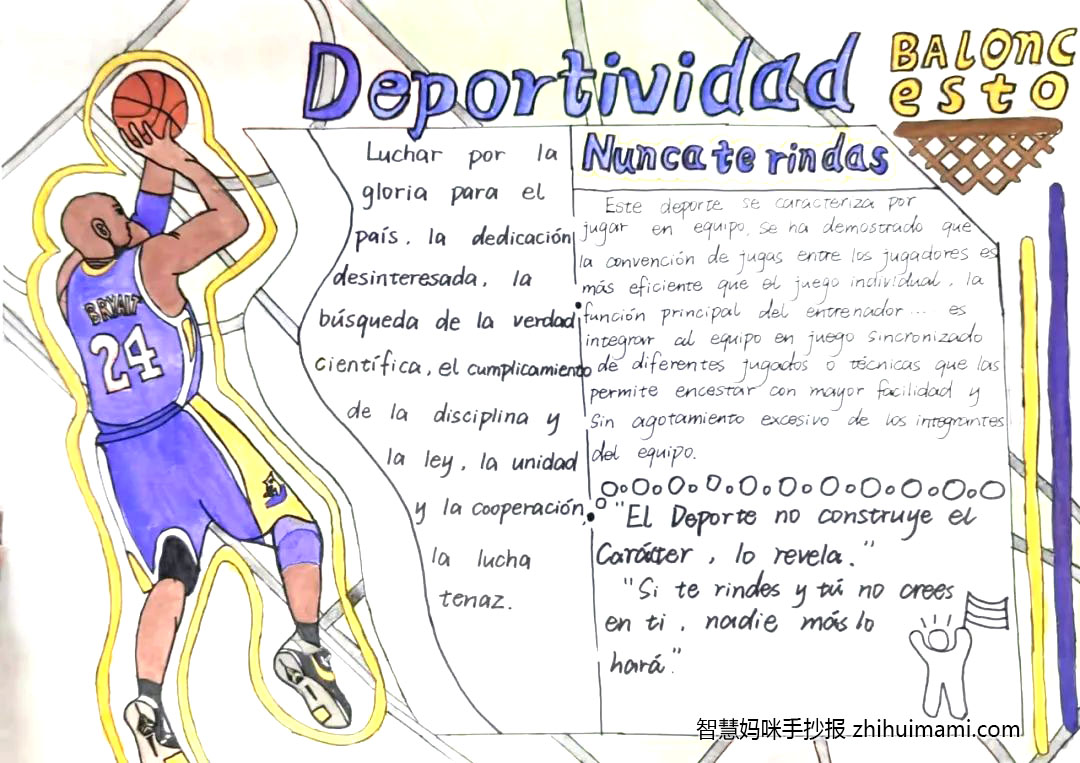 Deportividad
BALONC
esto
Luchar por la
gloria para el
país, la dedicación
desinteresada, la
búsqueda de la verdad
científica, el cumplicamiento
de la disciplina y
la ley, la unidad
y la cooperación,
la lucha
tenaz.
Nunca te rindas
Este deporte se caracteriza por
jugar en equipo, se ha demostrado que
la convención de jugas entre los jugadores es
más eficiente que el juego individual, la
función principal del entrenador... es
integrar al equipo en juego sincronizado
de diferentes jugados o técnicas que las
permite encestar con mayor facilidad y
sin agotamiento excesivo de los integrantes
del equipo.
"El Deporte no construye el
Carácter, lo revela."
"Si te rindes y tú no crees
en ti, nadie más lo
hará."
BRYANT
24
智慧妈咪手抄报 zhihuimami.com